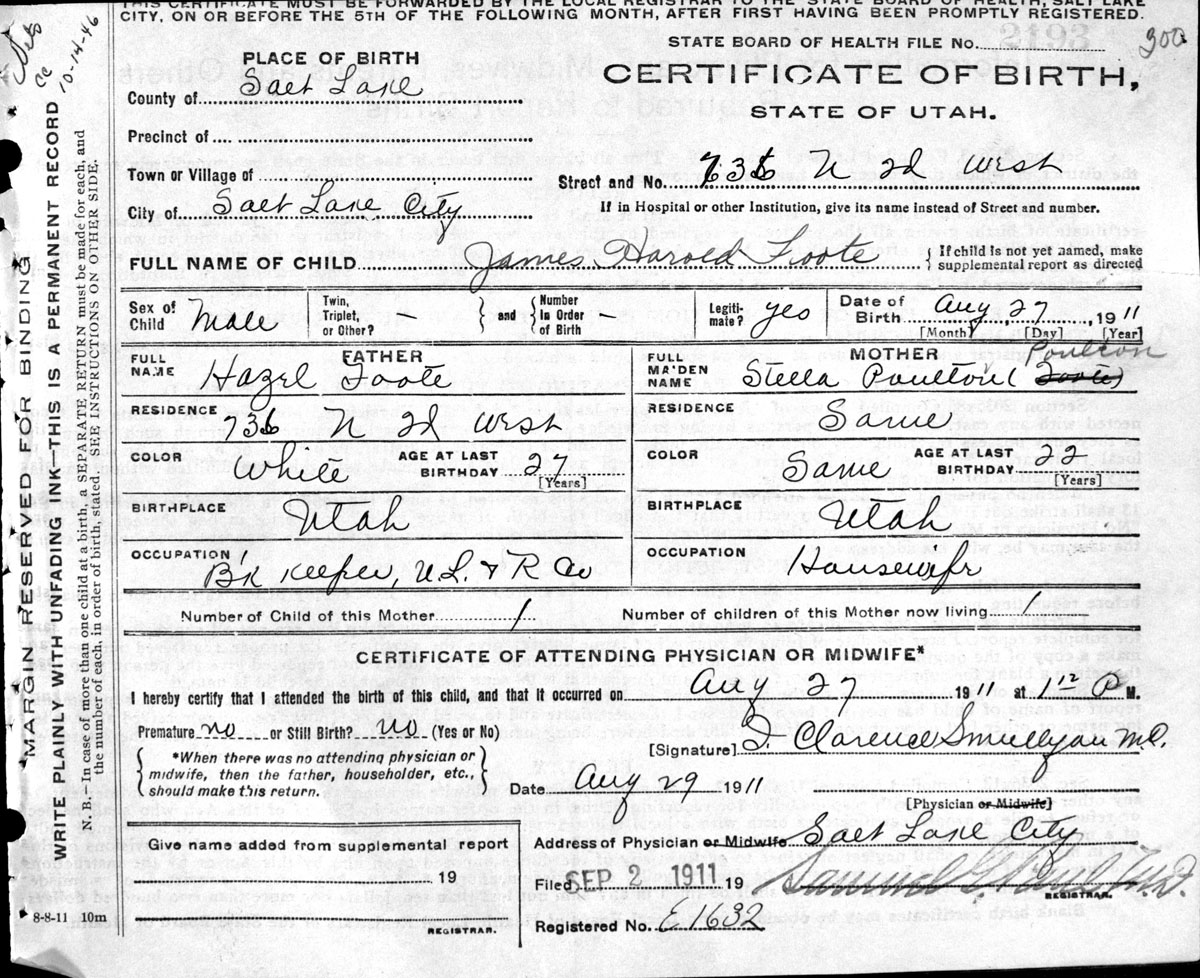 THIS CERTIFICATE MUST BE FORWARDED BY THE LOCAL REGISTRAR TO THE STATE BOARD OF HEALTH, SALT LAKE
CITY, ON OR BEFORE THE 5TH OF THE FOLLOWING MONTH, AFTER FIRST HAVING BEEN PROMPTLY REGISTERED.
10-14-46
300
STATE BOARD OF HEALTH FILE No.
PLACE OF BIRTH
CERTIFICATE OF BIRTH,
STATE OF UTAH.
County of Salt Lake
Precinct of
Town or Village of
Street and No. 736 N 2d West
City of Salt Lake City
If in Hospital or other Institution, give its name instead of Street and number.
FULL NAME OF CHILD James Harold Foote { If child is not yet named, make supplemental report as directed
Sex of Child Male Twin, Triplet, or Other? } and { Number in Order of Birth – Legiti-mate? yes Date of Birth Aug 27, 1911
[Month] [Day] [Year]
FATHER
MOTHER
FULL NAME Hazel Foote
FULL MAIDEN NAME Stella Poulton (Foote) Poulton
RESIDENCE 736 N 2d West
RESIDENCE Same
COLOR White AGE AT LAST BIRTHDAY 27 [Years]
COLOR Same AGE AT LAST BIRTHDAY 22 (Years)
BIRTHPLACE Utah
BIRTHPLACE Utah
OCCUPATION B'k Keeper, U.L. & R Co
OCCUPATION Housewife
Number of Child of this Mother 1 Number of children of this Mother now living 1
CERTIFICATE OF ATTENDING PHYSICIAN OR MIDWIFE*
I hereby certify that I attended the birth of this child, and that it occurred on Aug 27 1911 at 1 12 P M.
Premature no or Still Birth? no (Yes or No)
[Signature] Clarence M.D.
*When there was no attending physician or midwife, then the father, householder, etc., should make this return.
Date Aug 29 1911
[Physician or Midwife]
Give name added from supplemental report
19
REGISTRAR.
Address of Physician or Midwife Salt Lake City
Filed SEP 2 1911 19 Samuel G. Paul M.D.
REGISTRAR.
Registered No. 1632
8-8-11 10m
MARGIN RESERVED FOR BINDING
WRITE PLAINLY WITH UNFADING INK—THIS IS A PERMANENT RECORD
N. B.—In case of more than one child at a birth, a SEPARATE RETURN must be made for each, and
the number of each, in order of birth, stated. SEE INSTRUCTIONS ON OTHER SIDE.